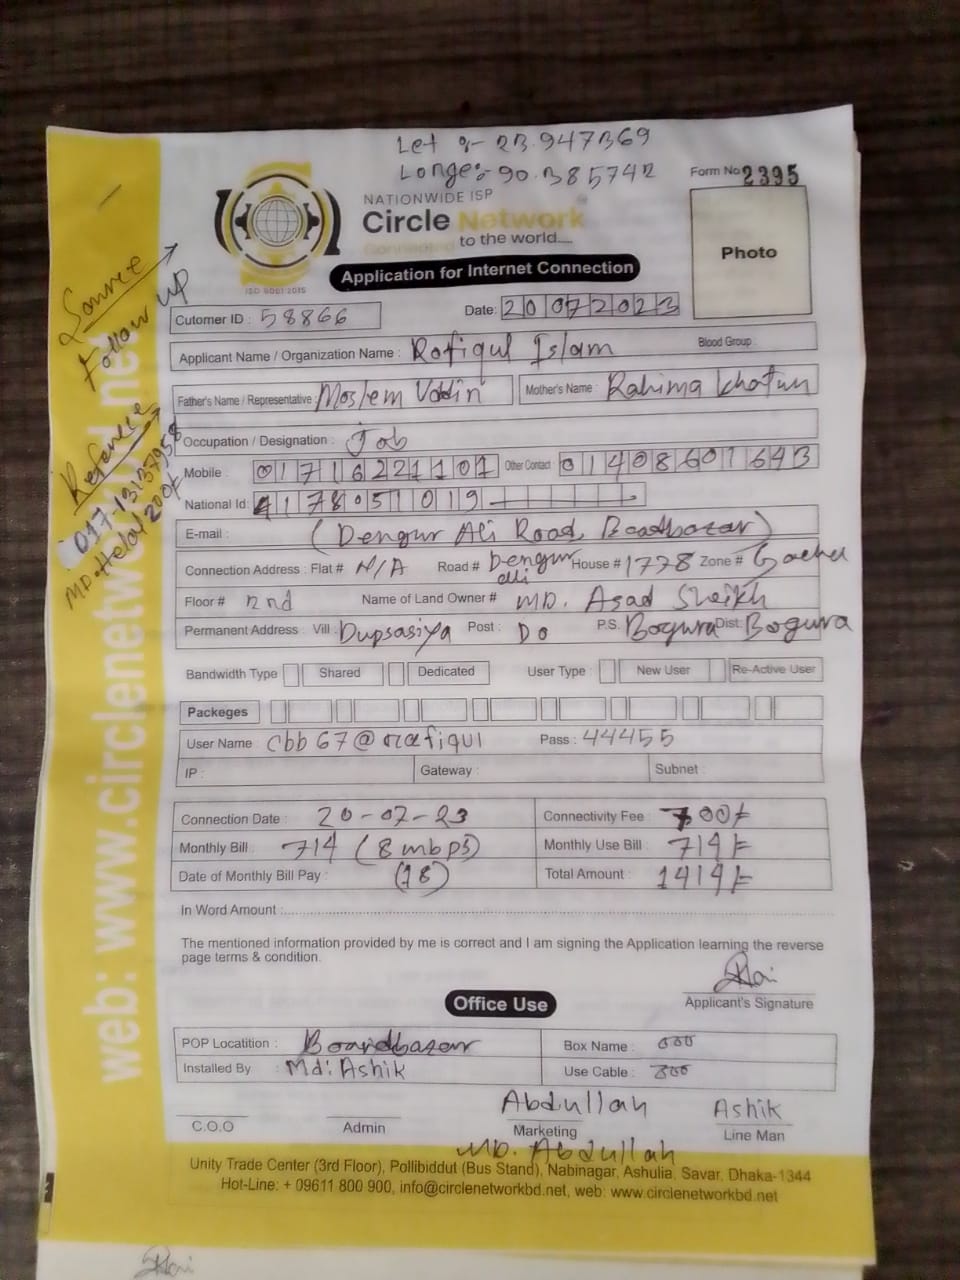 Let :- 23.947369
Longe:- 90.385742
Form No 2395
NATIONWIDE ISP
Circle Network
Connected to the world....
ISO 9001:2015
Application for Internet Connection
Photo
Cutomer ID : 58866
Date: 20072023
Applicant Name / Organization Name : Rofiqul Islam Blood Group
Father's Name / Representative : Moslem Uddin Mother's Name : Rahima Khatun
Occupation / Designation : Job
Mobile : 01716221101 Other Contact : 01408601643
National Id: 4178051019
E-mail : (Dengur Ali Road, Boardbazar)
Connection Address : Flat # N/A Road # Dengur Ali House # 1778 Zone #
Floor # 2nd Name of Land Owner # MD. Asad Sheikh
Permanent Address : Vill : Dupsasiya Post : Do P.S. Bogura Dist: Bogura
Bandwidth Type Shared Dedicated User Type : New User Re-Active User
Packeges
User Name : cbb67@rafiqul Pass : 44455
IP : Gateway : Subnet :
Connection Date : 20-07-23 Connectivity Fee : 700/-
Monthly Bill : 714 (8 mbps) Monthly Use Bill : 714/=
Date of Monthly Bill Pay : (18) Total Amount : 1414/=
In Word Amount :
The mentioned information provided by me is correct and I am signing the Application learning the reverse
page terms & condition.
Applicant's Signature
Office Use
POP Locatition : Boardbazar Box Name :
Installed By : Md: Ashik Use Cable :
Abdullah Ashik
C.O.O Admin Marketing Line Man
MD. Abdullah
Unity Trade Center (3rd Floor), Pollibiddut (Bus Stand), Nabinagar, Ashulia, Savar, Dhaka-1344
Hot-Line: + 09611 800 900, info@circlenetworkbd.net, web: www.circlenetworkbd.net
web: www.circlenetworkbd.net
Source
Follow up
Referece
017-13137958
MD. Helal 200/